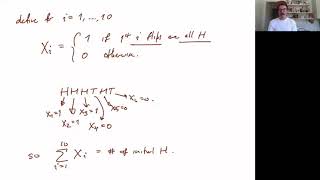 define for i=1,...,10
X_i = { 1 if 1st i flips are all H
0 otherwise.
H H H T H T
X_1=1 X_2=1 X_3=1 X_4=0 X_5=0 → X_6=0.
so Σ_{i=1}^{10} X_i = # of initial H.